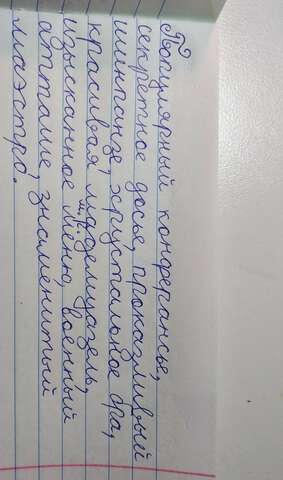 Популярный конферансье,
секретное досье, проказливый
шимпанзе, хрустальное бра,
красивая мадемуазель,
м.р.
изысканное меню, военный
атташе, знаменитый
маэстро.